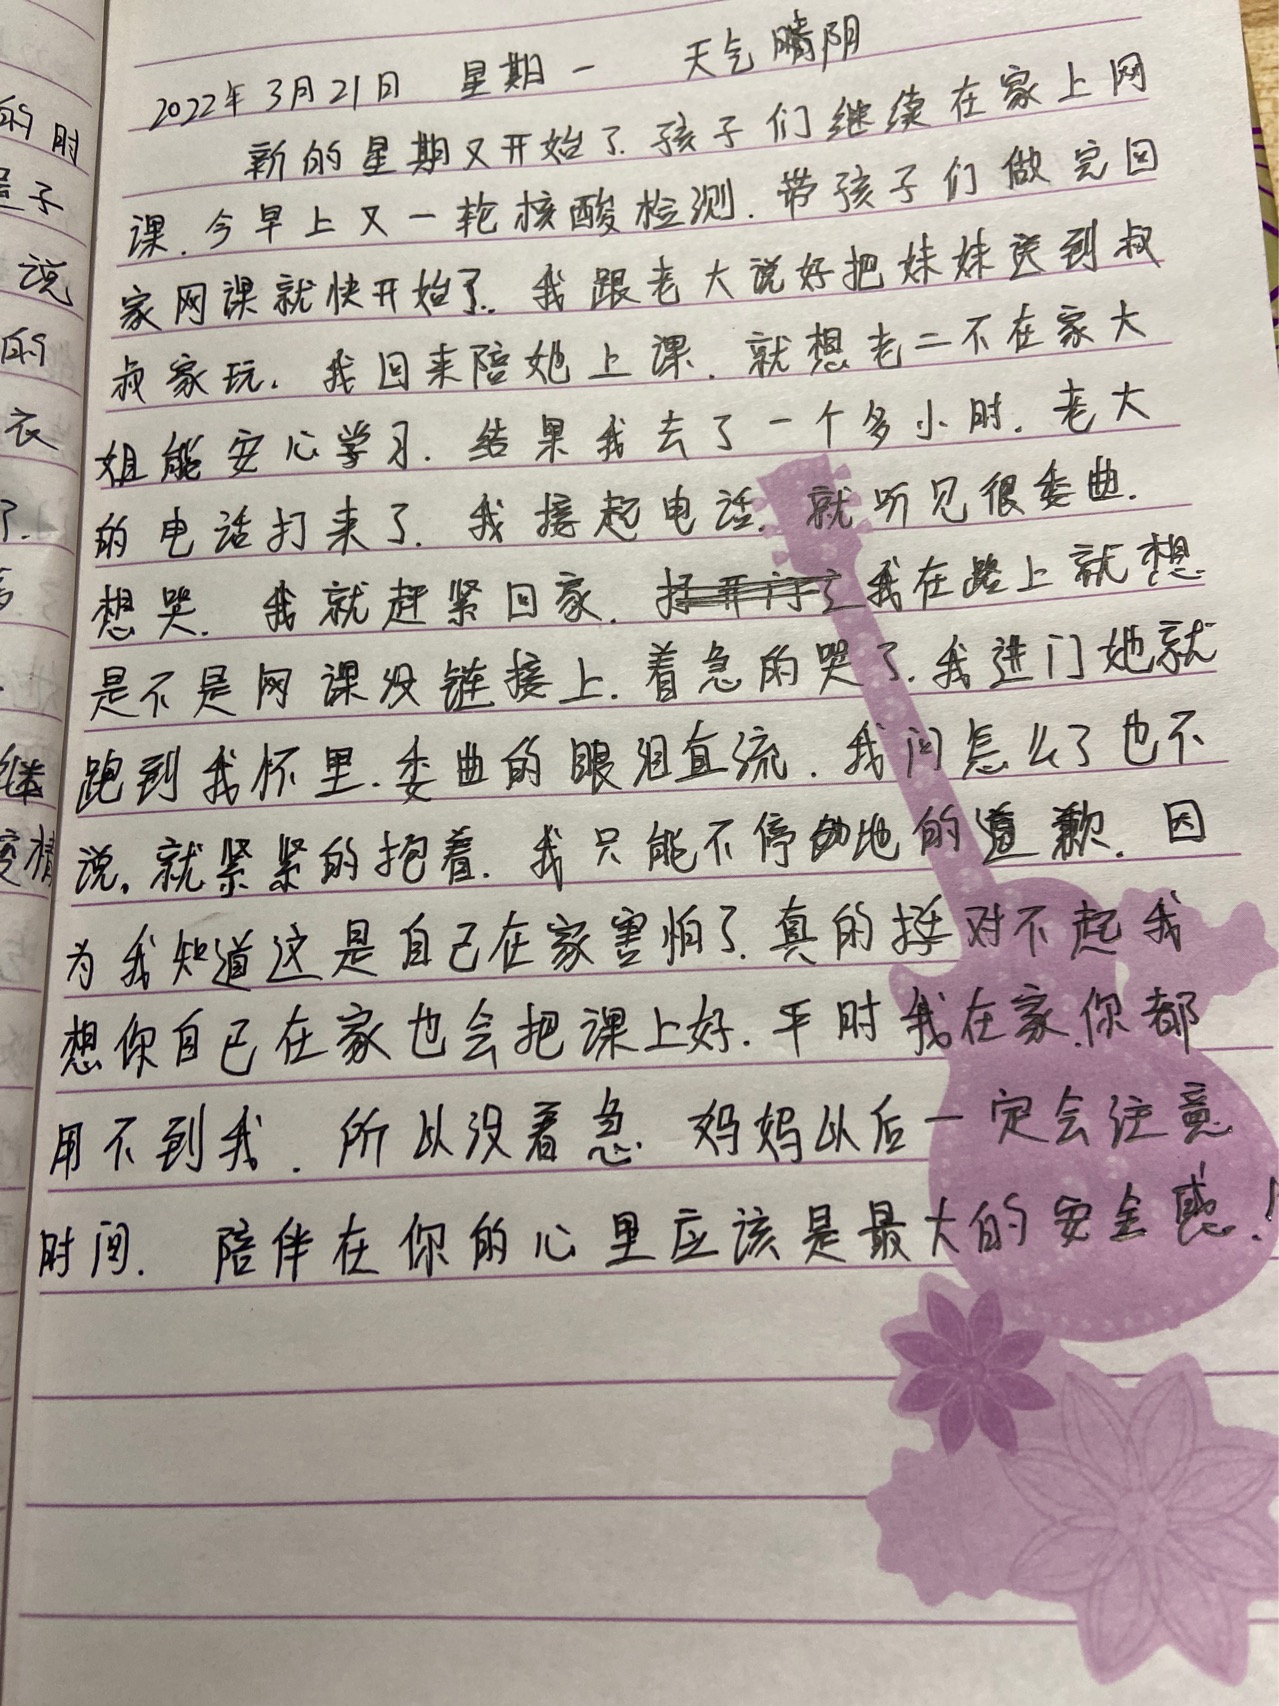 2022年3月21日 星期一 天气晴阴
新的星期又开始了.孩子们继续在家上网
课.今早上又一轮核酸检测.带孩子们做完回
家网课就快开始了.我跟老大说好把妹妹送到叔
叔家玩.我回来陪她上课.就想老二不在家大
姐能安心学习.结果我去了一个多小时.老大
的电话打来了.我接起电话.就听见很委曲.
想哭.我就赶紧回家.我在路上就想
是不是网课没链接上.着急的哭了.我进门她就
跑到我怀里.委曲的眼泪直流.我问怎么了也不
说.就紧紧的抱着.我只能不停地的道歉.因
为我知道这是自己在家害怕了.真的挺对不起我
想你自己在家也会把课上好.平时我在家.你都
用不到我.所以没着急.妈妈以后一定会注意
时间.陪伴在你的心里应该是最大的安全感!
的时
子
说
的
衣
了.